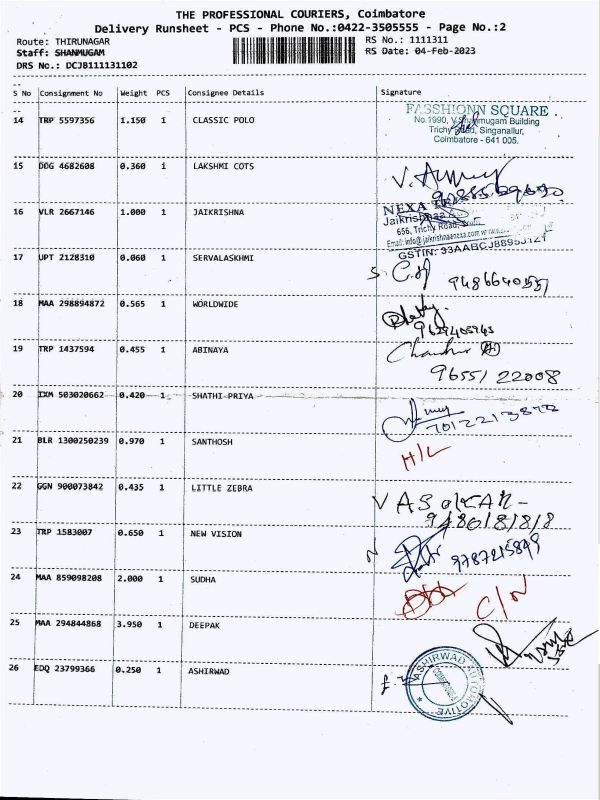 THE PROFESSIONAL COURIERS, Coimbatore
Delivery Runsheet - PCS - Phone No.:0422-3505555 - Page No.:2
Route: THIRUNAGAR
RS No.: 1111311
Staff: SHANMUGAM
RS Date: 04-Feb-2023
DRS No.: DCJB111131102
S No Consignment No Weight PCS Consignee Details Signature
14 TRP 5597356 1.150 1 CLASSIC POLO
FASSHIONN SQUARE
No.1990, V.Shanmugam Building
Trichy Road, Singanallur,
Coimbatore - 641 005.
15 DDG 4682608 0.360 1 LAKSHMI COTS
16 VLR 2667146 1.000 1 JAIKRISHNA
NEXA
Jaikrishnaa
656, Trichy Road,
Email: info@jaikrishnaanexa.com
GSTIN: 33AABCJ8895J1Z1
17 UPT 2128310 0.060 1 SERVALASKHMI
9486640551
18 MAA 298894872 0.565 1 WORLDWIDE
19 TRP 1437594 0.455 1 ABINAYA
96551 22008
20 IXM 503020662 0.420 1 SHATHI PRIYA
21 BLR 1300250239 0.970 1 SANTHOSH
H/L
22 GGN 900073842 0.435 1 LITTLE ZEBRA
9486181818
23 TRP 1583007 0.650 1 NEW VISION
9787215899
24 MAA 859098208 2.000 1 SUDHA
C/N
25 MAA 294844868 3.950 1 DEEPAK
26 EDQ 23799366 0.250 1 ASHIRWAD
ASHIRWAD AUTOMOTIVE